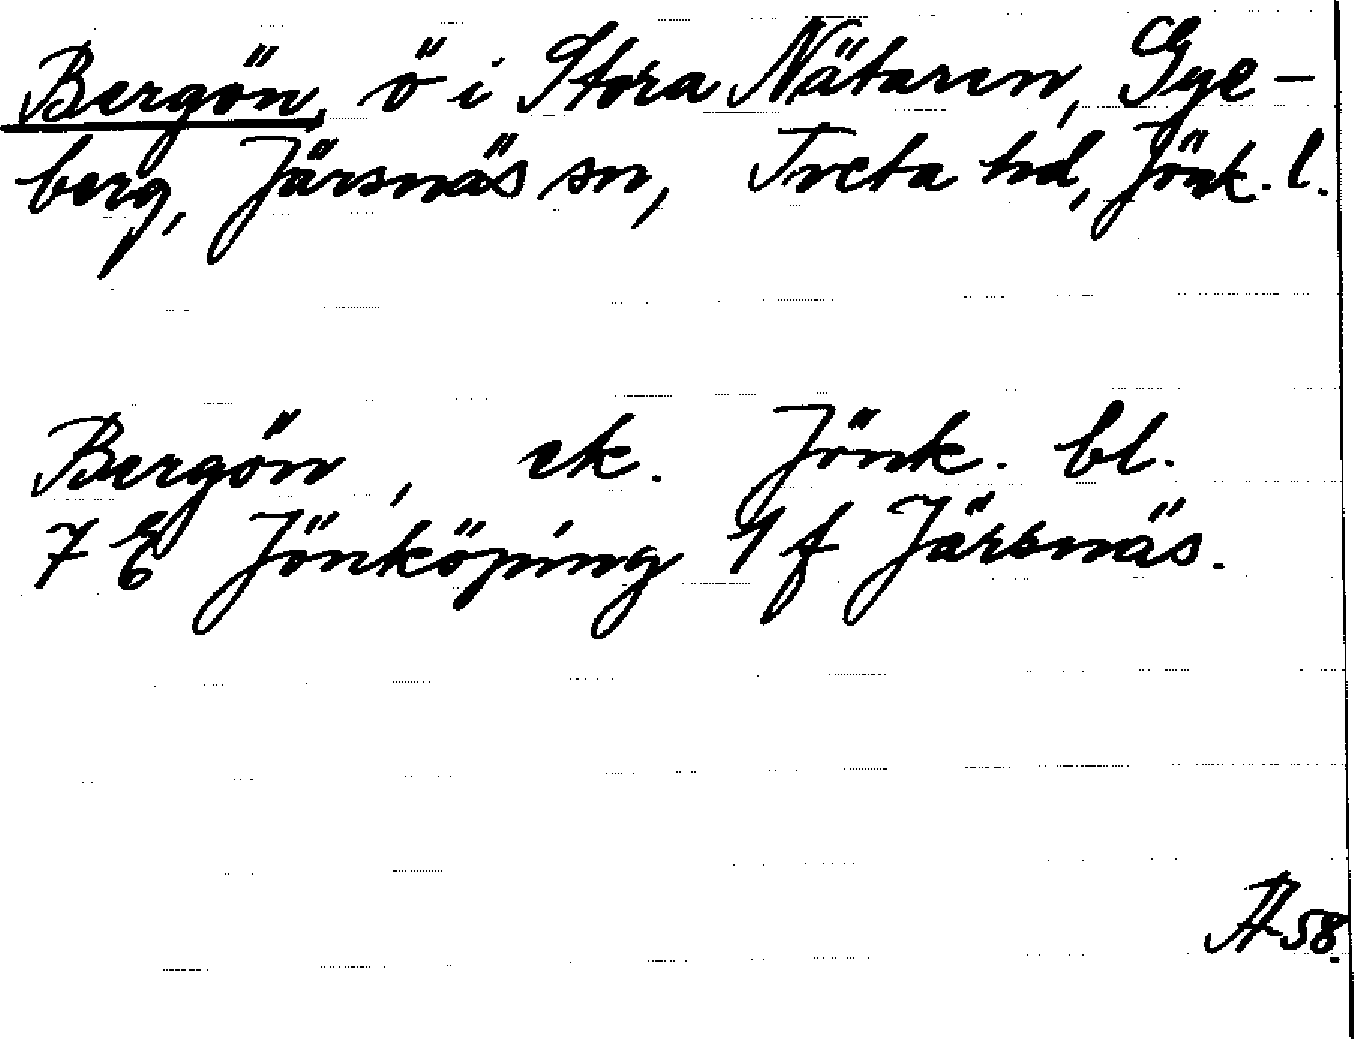 Bergön, ö i Stora Nätaren, Gye-
berg, Järsnäs sn, Tveta hd, Jönk. l.
Bergön, ek. Jönk. bl.
7 E Jönköping 1 f Järsnäs.
A 58.